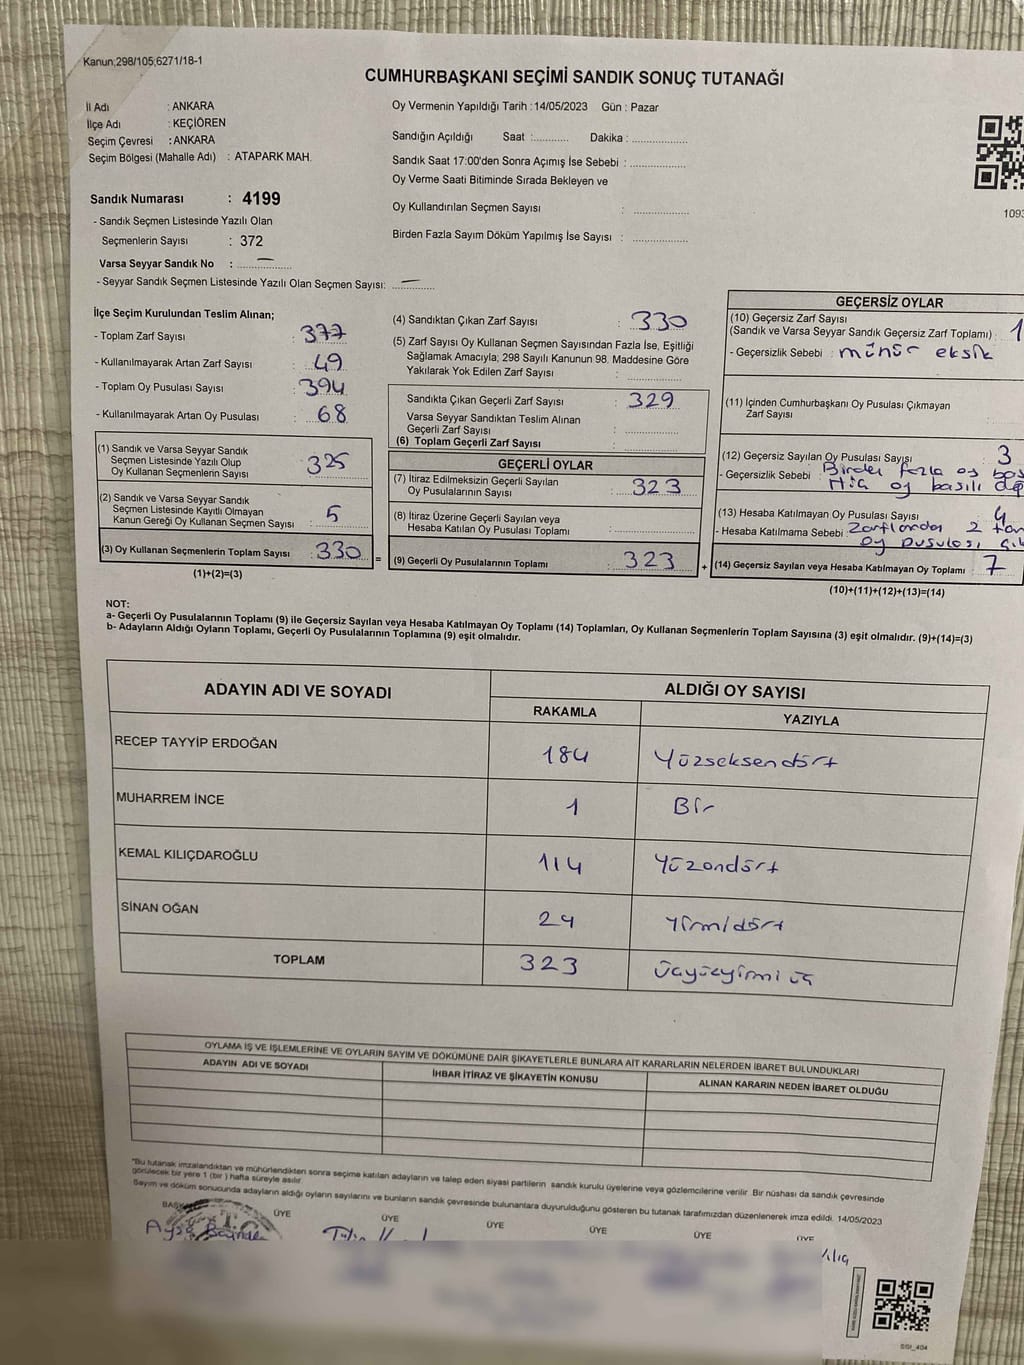 Kanun;298/105;6271/18-1
CUMHURBAŞKANI SEÇİMİ SANDIK SONUÇ TUTANAĞI
İl Adı : ANKARA
İlçe Adı : KEÇİÖREN
Seçim Çevresi : ANKARA
Seçim Bölgesi (Mahalle Adı) : ATAPARK MAH.
Oy Vermenin Yapıldığı Tarih : 14/05/2023 Gün : Pazar
Sandığın Açıldığı Saat :........... Dakika : ..................
Sandık Saat 17:00'den Sonra Açımış İse Sebebi : ..................
Oy Verme Saati Bitiminde Sırada Bekleyen ve
Oy Kullandırılan Seçmen Sayısı : ..................
Birden Fazla Sayım Döküm Yapılmış İse Sayısı : ..................
1093
Sandık Numarası : 4199
- Sandık Seçmen Listesinde Yazılı Olan
Seçmenlerin Sayısı : 372
Varsa Seyyar Sandık No : —
- Seyyar Sandık Seçmen Listesinde Yazılı Olan Seçmen Sayısı: —
İlçe Seçim Kurulundan Teslim Alınan;
- Toplam Zarf Sayısı : 377
- Kullanılmayarak Artan Zarf Sayısı : 49
- Toplam Oy Pusulası Sayısı : 394
- Kullanılmayarak Artan Oy Pusulası : 68
(1) Sandık ve Varsa Seyyar Sandık
Seçmen Listesinde Yazılı Olup
Oy Kullanan Seçmenlerin Sayısı : 325
(2) Sandık ve Varsa Seyyar Sandık
Seçmen Listesinde Kayıtlı Olmayan
Kanun Gereği Oy Kullanan Seçmen Sayısı : 5
(3) Oy Kullanan Seçmenlerin Toplam Sayısı : 330
(1)+(2)=(3)
(4) Sandıktan Çıkan Zarf Sayısı : 330
(5) Zarf Sayısı Oy Kullanan Seçmen Sayısından Fazla İse, Eşitliği
Sağlamak Amacıyla; 298 Sayılı Kanunun 98. Maddesine Göre
Yakılarak Yok Edilen Zarf Sayısı : ..................
Sandıkta Çıkan Geçerli Zarf Sayısı : 329
Varsa Seyyar Sandıktan Teslim Alınan
Geçerli Zarf Sayısı : ..................
(6) Toplam Geçerli Zarf Sayısı : ..................
GEÇERLİ OYLAR
(7) İtiraz Edilmeksizin Geçerli Sayılan
Oy Pusulalarının Sayısı : 323
(8) İtiraz Üzerine Geçerli Sayılan veya
Hesaba Katılan Oy Pusulası Toplamı : ..................
= (9) Geçerli Oy Pusulalarının Toplamı : 323 +
GEÇERSİZ OYLAR
(10) Geçersiz Zarf Sayısı
(Sandık ve Varsa Seyyar Sandık Geçersiz Zarf Toplamı) : 1
- Geçersizlik Sebebi : mühür eksik
(11) İçinden Cumhurbaşkanı Oy Pusulası Çıkmayan
Zarf Sayısı
(12) Geçersiz Sayılan Oy Pusulası Sayısı 3
- Geçersizlik Sebebi : Birden fazla oy
Hiç oy basılı
(13) Hesaba Katılmayan Oy Pusulası Sayısı 4
- Hesaba Katılmama Sebebi : Zarflardan 2
oy pusulası
(14) Geçersiz Sayılan veya Hesaba Katılmayan Oy Toplamı : 7
(10)+(11)+(12)+(13)=(14)
NOT:
a- Geçerli Oy Pusulalarının Toplamı (9) ile Geçersiz Sayılan veya Hesaba Katılmayan Oy Toplamı (14) Toplamları, Oy Kullanan Seçmenlerin Toplam Sayısına (3) eşit olmalıdır. (9)+(14)=(3)
b- Adayların Aldığı Oyların Toplamı, Geçerli Oy Pusulalarının Toplamına (9) eşit olmalıdır.
ADAYIN ADI VE SOYADI ALDIĞI OY SAYISI
RAKAMLA YAZIYLA
RECEP TAYYİP ERDOĞAN 184 Yüzseksendört
MUHARREM İNCE 1 Bir
KEMAL KILIÇDAROĞLU 114 Yüzondört
SİNAN OĞAN 24 Yirmidört
TOPLAM 323 üçyüzyirmi üç
OYLAMA İŞ VE İŞLEMLERİNE VE OYLARIN SAYIM VE DÖKÜMÜNE DAİR ŞİKAYETLERLE BUNLARA AİT KARARLARIN NELERDEN İBARET BULUNDUKLARI
ADAYIN ADI VE SOYADI İHBAR İTİRAZ VE ŞİKAYETİN KONUSU ALINAN KARARIN NEDEN İBARET OLDUĞU
"Bu tutanak imzalandıktan ve mühürlendikten sonra seçime katılan adayların ve talep eden siyasi partilerin sandık kurulu üyelerine veya gözlemcilerine verilir. Bir nüshası da sandık çevresinde
görülecek bir yere 1 (bir) hafta süreyle asılır.
Sayım ve döküm sonucunda adayların aldığı oyların sayılarını ve bunların sandık çevresinde bulunanlara duyurulduğunu gösteren bu tutanak tarafımızdan düzenlenerek imza edildi. 14/05/2023
ÜYE ÜYE ÜYE ÜYE ÜYE ÜYE